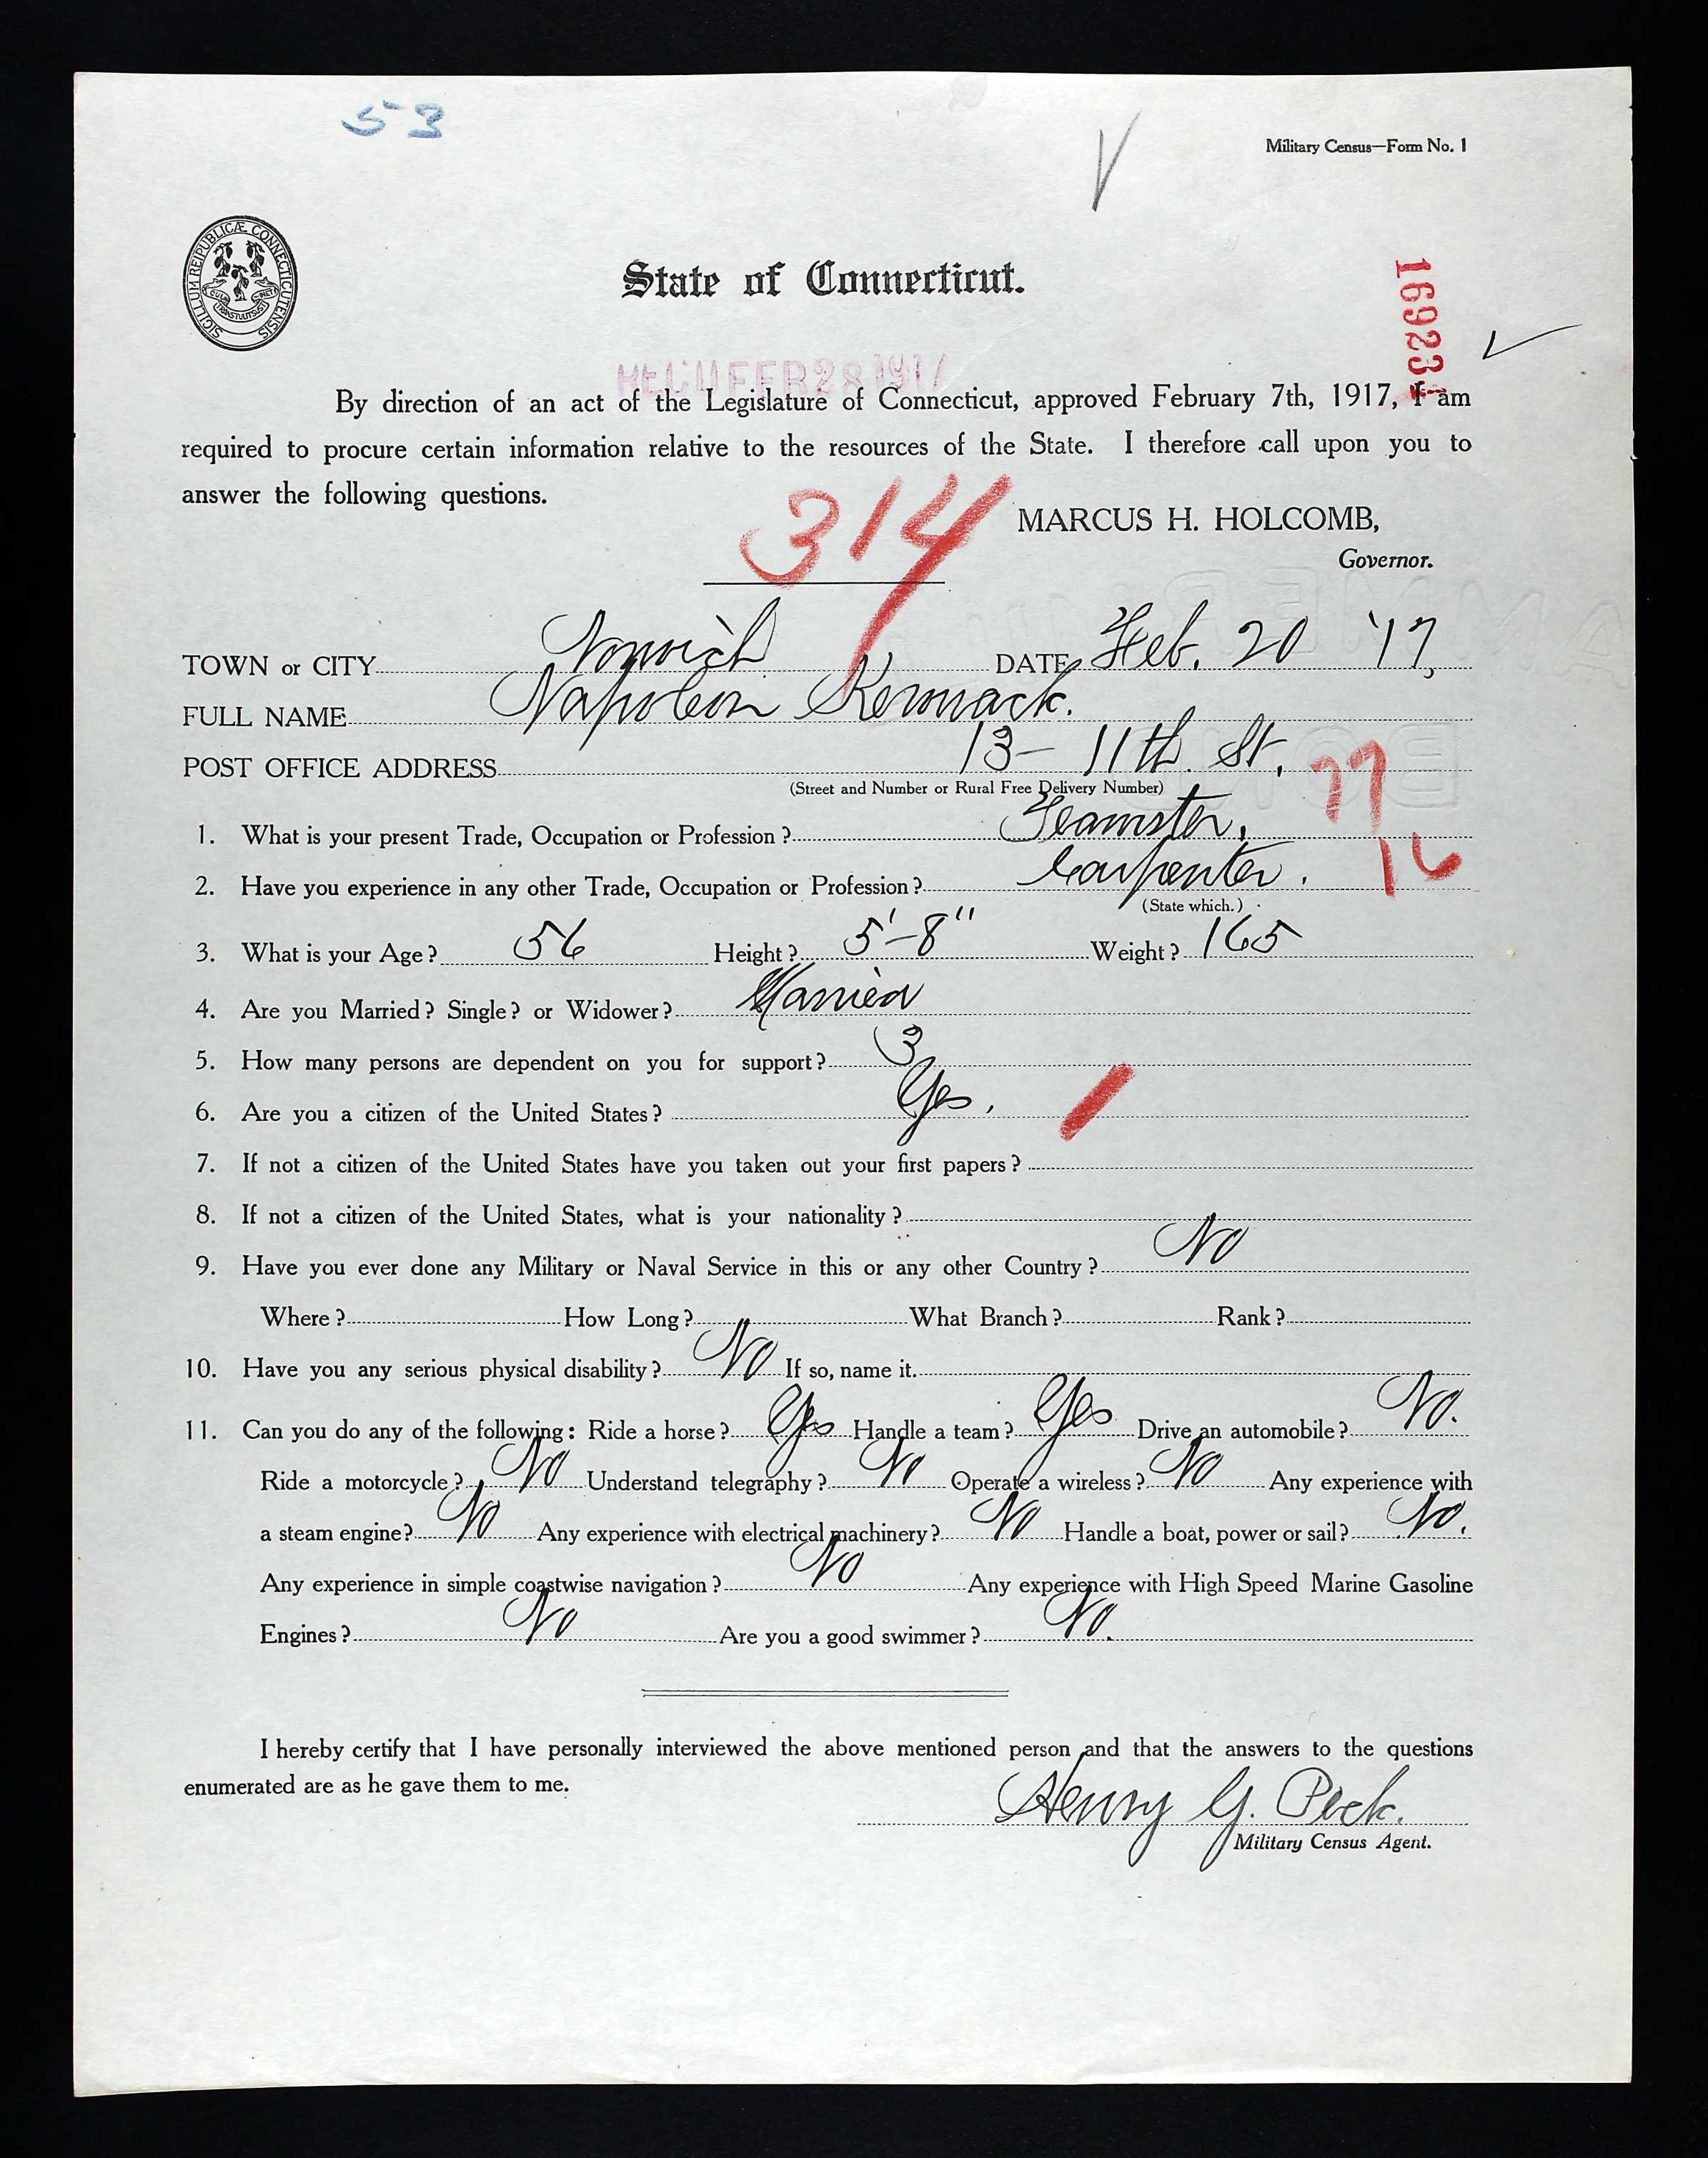 53
Military Census—Form No. 1
SIGILLUM REIPUBLICÆ CONNECTICUTENSIS
State of Connecticut.
REC'D FEB 28 1917
By direction of an act of the Legislature of Connecticut, approved February 7th, 1917, I am
required to procure certain information relative to the resources of the State. I therefore call upon you to
answer the following questions.
314
MARCUS H. HOLCOMB,
Governor.
TOWN or CITY Norwich DATE Feb. 20 '17,
FULL NAME Napoleon Kormack.
POST OFFICE ADDRESS 13- 11th. St.
(Street and Number or Rural Free Delivery Number)
77
1. What is your present Trade, Occupation or Profession? Teamster.
2. Have you experience in any other Trade, Occupation or Profession? Carpenter. 16
(State which.)
3. What is your Age? 56 Height? 5'-8" Weight? 165
4. Are you Married? Single? or Widower? Married
5. How many persons are dependent on you for support? 3
6. Are you a citizen of the United States? Yes.
7. If not a citizen of the United States have you taken out your first papers?
8. If not a citizen of the United States, what is your nationality?
9. Have you ever done any Military or Naval Service in this or any other Country? No
Where? How Long? What Branch? Rank?
10. Have you any serious physical disability? No If so, name it.
11. Can you do any of the following: Ride a horse? Yes Handle a team? Yes Drive an automobile? No.
Ride a motorcycle? No Understand telegraphy? No Operate a wireless? No Any experience with
a steam engine? No Any experience with electrical machinery? No Handle a boat, power or sail? No.
Any experience in simple coastwise navigation? No Any experience with High Speed Marine Gasoline
Engines? No Are you a good swimmer? No.
I hereby certify that I have personally interviewed the above mentioned person and that the answers to the questions
enumerated are as he gave them to me.
Henry G. Peck.
Military Census Agent.